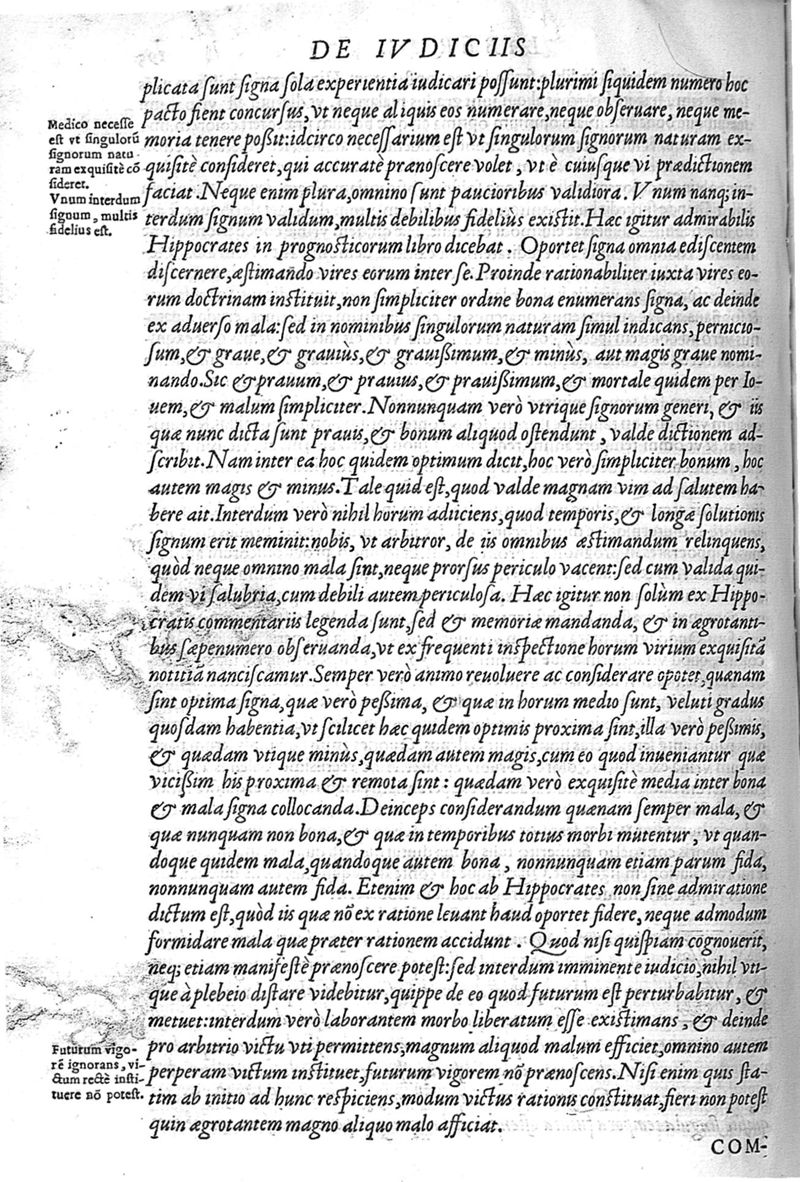 DE IVDICIIS
plicata sunt signa sola experientia iudicari possunt:plurimi siquidem numero hoc
pacto fient concursus,vt neque aliquis eos numerare,neque obseruare, neque me-
moria tenere poßit:idcirco necessarium est vt singulorum signorum naturam ex-
quisitè consideret,qui accuratè prænoscere volet, vt è cuiusque vi prædictionem
faciat.Neque enim plura,omnino sunt paucioribus validiora. Vnum nanq; in-
terdum signum validum,multis debilibus fideliùs existit.Hæc igitur admirabilis
Hippocrates in prognosticorum libro dicebat. Oportet signa omnia ediscentem
discernere,æstimando vires eorum inter se.Proinde rationabiliter iuxta vires eo-
rum doctrinam instituit,non simpliciter ordine bona enumerans signa, ac deinde
ex aduerso mala:sed in nominibus singulorum naturam simul indicans,pernicio-
sum,& graue,& grauiùs,& grauißimum,& minùs, aut magis graue nomi-
nando.Sic & prauum,& prauius,& prauißimum,& mortale quidem per Io-
uem,& malum simpliciter.Nonnunquam verò vtrique signorum generi, & iis
quæ nunc dicta sunt prauis,& bonum aliquod ostendunt, valde dictionem ad-
scribit.Nam inter ea hoc quidem optimum dicit,hoc verò simpliciter bonum, hoc
autem magis & minus.Tale quid est,quod valde magnam vim ad salutem ha-
bere ait.Interdum verò nihil horum adiiciens,quod temporis,& longæ solutionis
signum erit meminit:nobis, vt arbitror, de iis omnibus æstimandum relinquens,
quòd neque omnino mala sint,neque prorsus periculo vacent:sed cum valida qui-
dem vi salubria,cum debili autem periculosa. Hæc igitur non solùm ex Hippo-
cratis commentariis legenda sunt,sed & memoriæ mandanda, & in ægrotanti-
bus sæpenumero obseruanda,vt ex frequenti inspectione horum virium exquisitã
notitiã nanciscamur.Semper verò animo reuoluere ac considerare opotet,quænam
sint optima signa,quæ verò peßima, & quæ in horum medio sunt, veluti gradus
quosdam habentia,vt scilicet hæc quidem optimis proxima sint,illa verò peßimis,
& quædam vtique minùs,quædam autem magis,cum eo quod inueniantur quæ
vicißim his proxima & remota sint: quædam verò exquisitè media inter bona
& mala signa collocanda.Deinceps considerandum quænam semper mala, &
quæ nunquam non bona,& quæ in temporibus totius morbi mutentur, vt quan-
doque quidem mala,quandoque autem bona, nonnunquam etiam parum fida,
nonnunquam autem fida. Etenim & hoc ab Hippocrates non sine admiratione
dictum est,quòd iis quæ nõ ex ratione leuant haud oportet fidere, neque admodum
formidare mala quæ præter rationem accidunt. Quod nisi quispiam cognouerit,
neq; etiam manifestè prænoscere potest:sed interdum imminente iudicio,nihil vti-
que à plebeio distare videbitur,quippe de eo quod futurum est perturbabitur, &
metuet:interdum verò laborantem morbo liberatum esse existimans, & deinde
pro arbitrio victu vti permittens,magnum aliquod malum efficiet,omnino autem
perperam victum instituet,futurum vigorem nõ prænoscens.Nisi enim quis sta-
tim ab initio ad hunc respiciens,modum victus rationis constituat,fieri non potest
quin ægrotantem magno aliquo malo afficiat.
COM-
Medico necesse
est vt singulorũ
signorum natu
ram exquisitè cõ
sideret.
Vnum interdum
signum, multis
fidelius est.
Futurum vigo-
rẽ ignorans, vi-
ctum rectè insti-
tuere nõ potest.